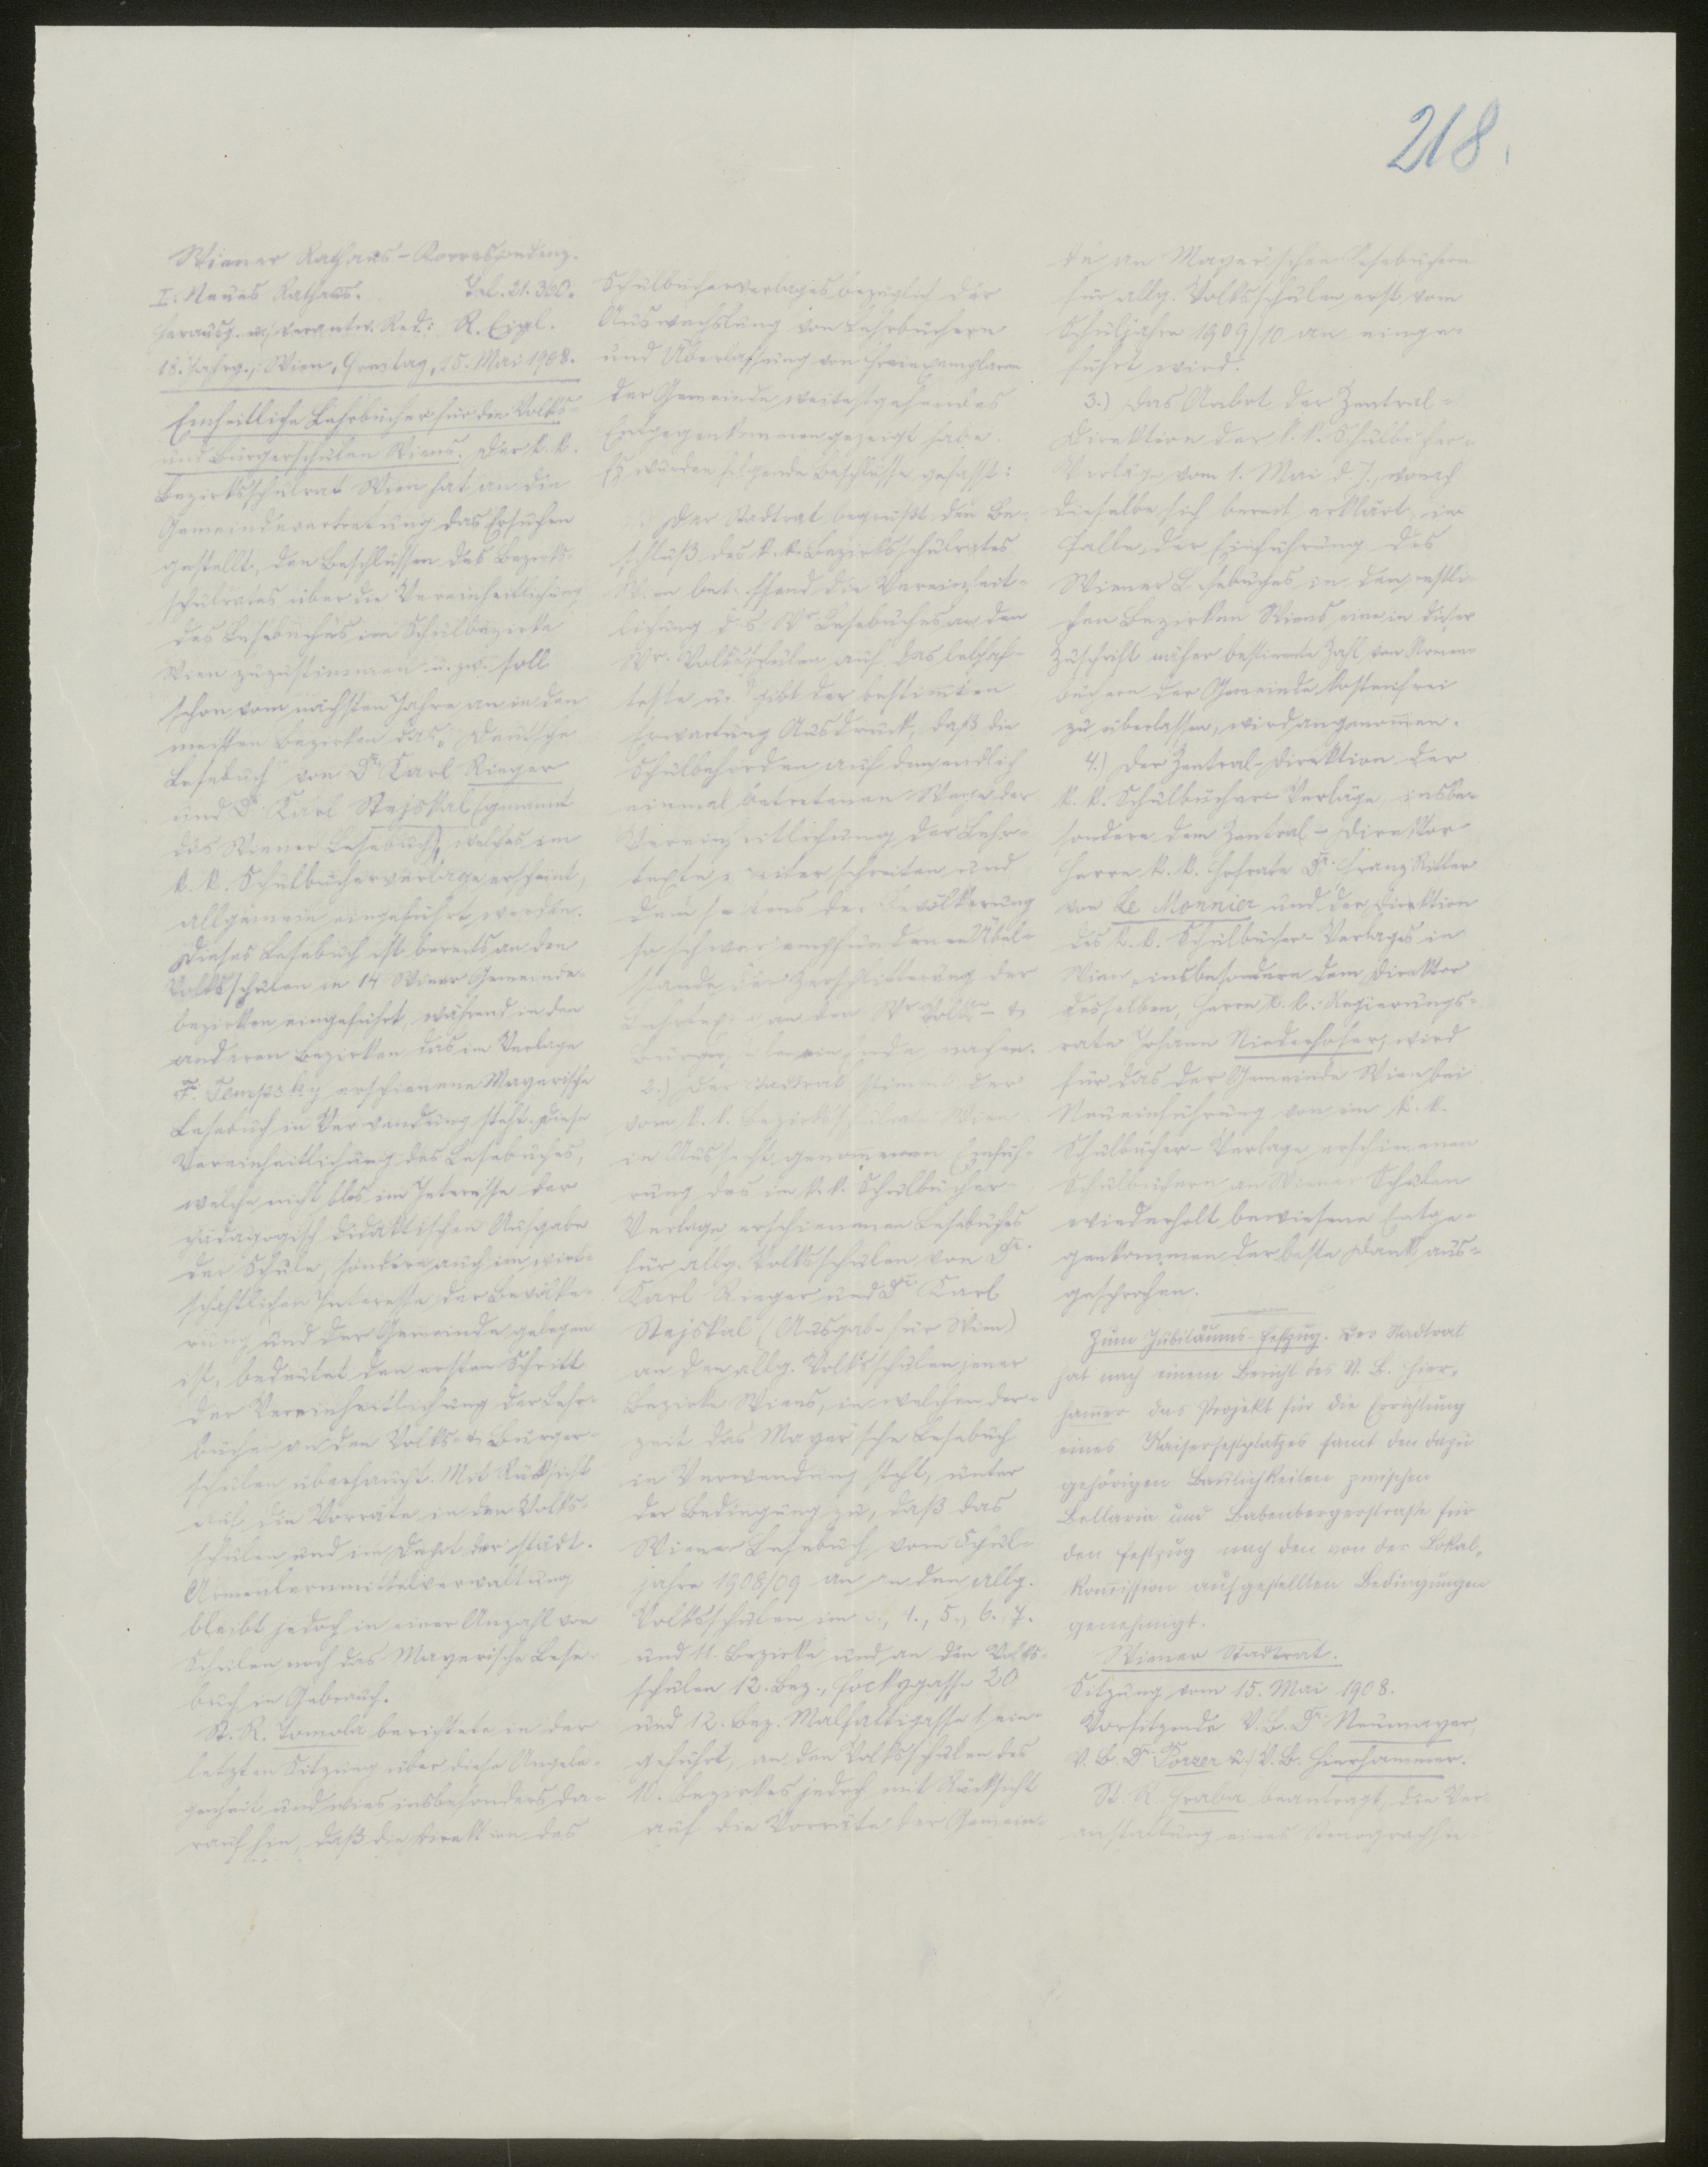 218.
Wiener Rathaus-Korrespondenz.
I. Neues Rathaus. Tel. 21.360.
Herausg. u. verantw. Red.: R. Eigl.
18. Jahrg., Wien, Freitag, 15. Mai 1908.
Einheitliche Lehrbücher für die Volks-
und Bürgerschulen Wiens. Der k. k.
Bezirksschulrat Wien hat an die
Gemeindevertretung das Ersuchen
gestellt, den Beschlüssen des Bezirks-
schulrates über die Vereinheitlichung
des Lesebuches im Schulbezirke
Wien zuzustimmen u. zw. soll
schon vom nächsten Jahre an in den
meisten Bezirken das „Deutsche
Lesebuch" von Dr. Karl Rieger
und Dr. Karl Stejskal (genannt
das Wiener Lesebuch), welches im
k. k. Schulbücherverlage erscheint,
allgemein eingeführt werden.
Dieses Lesebuch ist bereits an den
Volksschulen in 14 Wiener Gemeinde-
bezirken eingeführt, während in den
anderen Bezirken das im Verlage
F. Tempsky erschienene Mayerische
Lesebuch in Verwendung steht. Diese
Vereinheitlichung des Lesebuches,
welche nicht blos im Interesse der
pädagogisch didaktischen Aufgabe
der Schule, sondern auch im wirt-
schaftlichen Interesse der Bevölke-
rung und der Gemeinde gelegen
ist, bedeutet den ersten Schritt
der Vereinheitlichung der Lehr-
bücher an den Volks- u. Bürger-
schulen überhaupt. Mit Rücksicht
auf die Vorräte in den Volks-
schulen und im Depot der städt.
Armenlernmittelverwaltung
bleibt jedoch in einer Anzahl von
Schulen noch das Mayerische Lese-
buch in Gebrauch.
St. R. Tomola berichtete in der
letzten Sitzung über diese Angele-
genheit und wies insbesonders da-
rauf hin, daß die Direktion des
Schulbücherverlages bezüglich der
Auswechslung von Lehrbüchern
und Überlassung von Freiexemplaren
der Gemeinde weitestgehendes
Entgegenkommen gezeigt habe.
Es wurden folgende Beschlüsse gefasst:
Der Stadtrat begrüßt den Be-
schluß des k. k. Bezirksschulrates
Wien betreffend die Vereinheit-
lichung des Wr. Lesebuches an den
Wr. Volksschulen auf das lebhaf-
teste u. gibt der bestimmten
Erwartung Ausdruck, daß die
Schulbehörden auf dem endlich
einmal betretenen Wege der
Vereinheitlichung der Lehr-
texte weiter schreiten und
dem seitens der Bevölkerung
so schwer empfundenen Übel-
stande der Zersplitterung der
Lehrtexte an den Wr. Volks- u.
Bürgerschulen ein Ende machen.
2.) Der Stadtrat stimmt der
vom k. k. Bezirksschulrate Wien
in Aussicht genommenen Einfüh-
rung des im k. k. Schulbücher-
Verlage erschienenen Lesebuches
für allg. Volksschulen von Dr.
Karl Rieger und Dr. Karl
Stejskal (Ausgabe für Wien)
an den allg. Volksschulen jener
Bezirke Wiens, in welchen der-
zeit das Mayer'sche Lesebuch
in Verwendung steht, unter
der Bedingung zu, daß das
Wiener Lesebuch vom Schul-
jahre 1908/09 an an den allg.
Volksschulen im 4., 5., 6. 7.
und 11. Bezirke und an den Volks-
schulen 12. Bez., Hockygasse 20
und 12. Bez. Malfattigasse 1 ein-
geführt, an den Volksschulen des
10. Bezirkes jedoch mit Rücksicht
auf die Vorräte der Gemein-
de an Mayer'schen Lesebüchern
für allg. Volksschulen erst vom
Schuljahre 1909/10 an einge-
führt wird.
3.) Das Anbot der Zentral-
Direktion der k. k. Schulbücher-
Verläge vom 1. Mai d. J., wonach
dieselbe sich bereit erklärt, im
Falle der Einführung des
Wiener Lesebuches in den restli-
chen Bezirken Wiens eine in dieser
Zuschrift näher bestimmte Zahl von Armen-
büchern der Gemeinde kostenfrei
zu überlassen, wird angenommen.
4.) Der Zentral-Direktion der
k. k. Schulbücher-Verläge, insbe-
sondere dem Zentral-Direktor
Herrn k. k. Hofrate Dr. Franz Ritter
von Le Monnier und der Direktion
des k. k. Schulbücher-Verlages in
Wien, insbesondere dem Direktor
desselben, Herrn k. k. Regierungs-
rate Johann Niederhofer, wird
für das der Gemeinde Wien bei
Neueinführung von im k. k.
Schulbücher-Verlage erschienenen
Schulbüchern an Wiener Schulen
wiederholt bewiesene Entge-
genkommen der beste Dank aus-
gesprochen.
Zum Jubiläums-Festzug. Der Stadtrat
hat nach einem Bericht des V. B. Hier-
hammer das Projekt für die Errichtung
eines Kaiserfestplatzes samt den dazu
gehörigen Baulichkeiten zwischen
Bellaria und Babenbergerstraße für
den Festzug nach den von der Lokal-
komission aufgestellten Bedingungen
genehmigt.
Wiener Stadtrat.
Sitzung vom 15. Mai 1908.
Vorsitzende V. B. Dr. Neumayer,
V. B. Dr. Porzer u. V. B. Hierhammer.
St. R. Hraba beantragt, die Ver-
anstaltung eines